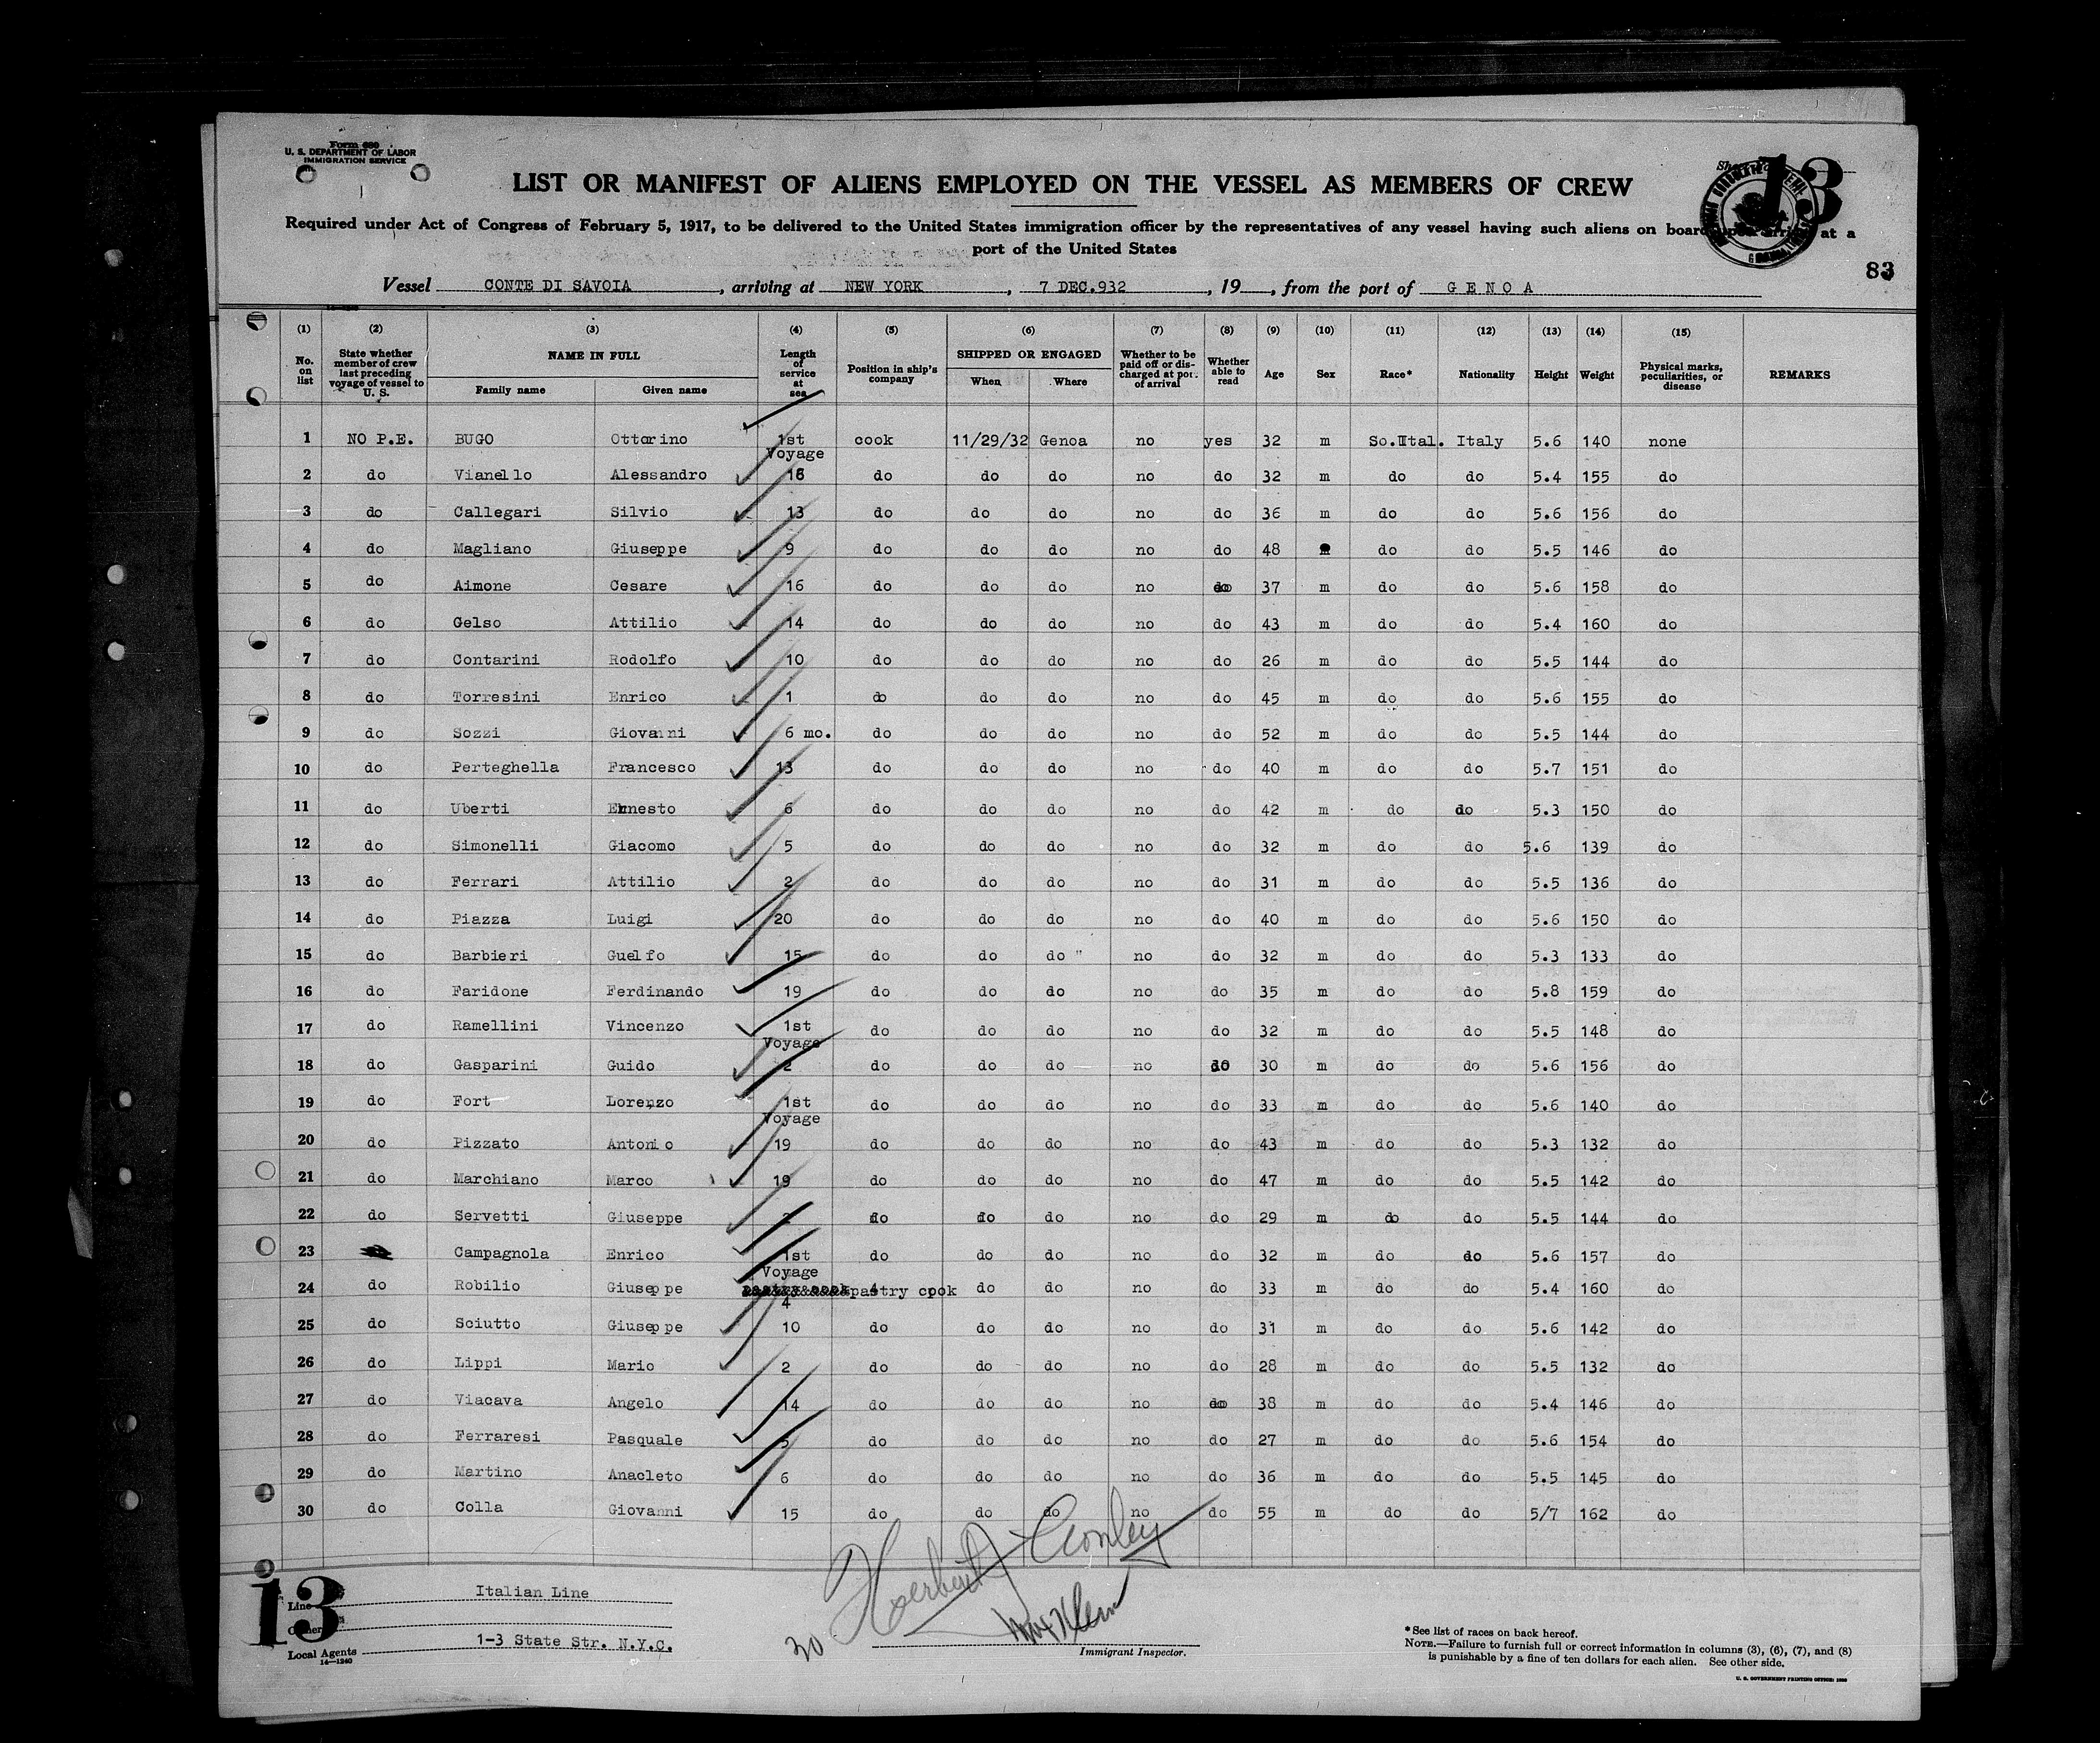 Form 680
U. S. DEPARTMENT OF LABOR
IMMIGRATION SERVICE
LIST OR MANIFEST OF ALIENS EMPLOYED ON THE VESSEL AS MEMBERS OF CREW
13
Required under Act of Congress of February 5, 1917, to be delivered to the United States immigration officer by the representatives of any vessel having such aliens on board upon arrival at a
port of the United States
83
Vessel CONTE DI SAVOIA , arriving at NEW YORK , 7 DEC.932 , 19 , from the port of G E N O A
(1) (2) (3) (4) (5) (6) (7) (8) (9) (10) (11) (12) (13) (14) (15)
No. on list State whether member of crew last preceding voyage of vessel to U. S. NAME IN FULL Family name Given name Length of service at sea Position in ship's company SHIPPED OR ENGAGED When Where Whether to be paid off or discharged at port of arrival Whether able to read Age Sex Race* Nationality Height Weight Physical marks, peculiarities, or disease REMARKS
1 NO P.E. BUGO Ottorino 1st Voyage cook 11/29/32 Genoa no yes 32 m So.Ital. Italy 5.6 140 none
2 do Vianello Alessandro 16 do do do no do 32 m do do 5.4 155 do
3 do Callegari Silvio 13 do do do no do 36 m do do 5.6 156 do
4 do Magliano Giuseppe 9 do do do no do 48 m do do 5.5 146 do
5 do Aimone Cesare 16 do do do no do 37 m do do 5.6 158 do
6 do Gelso Attilio 14 do do do no do 43 m do do 5.4 160 do
7 do Contarini Rodolfo 10 do do do no do 26 m do do 5.5 144 do
8 do Torresini Enrico 1 do do do no do 45 m do do 5.6 155 do
9 do Sozzi Giovanni 6 mo. do do do no do 52 m do do 5.5 144 do
10 do Perteghella Francesco 13 do do do no do 40 m do do 5.7 151 do
11 do Uberti Ernesto 6 do do do no do 42 m do do 5.3 150 do
12 do Simonelli Giacomo 5 do do do no do 32 m do do 5.6 139 do
13 do Ferrari Attilio 2 do do do no do 31 m do do 5.5 136 do
14 do Piazza Luigi 20 do do do no do 40 m do do 5.6 150 do
15 do Barbieri Guelfo 15 do do do " no do 32 m do do 5.3 133 do
16 do Faridone Ferdinando 19 do do do no do 35 m do do 5.8 159 do
17 do Ramellini Vincenzo 1st Voyage do do do no do 32 m do do 5.5 148 do
18 do Gasparini Guido 2 do do do no do 30 m do do 5.6 156 do
19 do Fort Lorenzo 1st Voyage do do do no do 33 m do do 5.6 140 do
20 do Pizzato Antonio 19 do do do no do 43 m do do 5.3 132 do
21 do Marchiano Marco 19 do do do no do 47 m do do 5.5 142 do
22 do Servetti Giuseppe 2 do do do no do 29 m do do 5.5 144 do
23 Campagnola Enrico 1st Voyage do do do no do 32 m do do 5.6 157 do
24 do Robilio Giuseppe 4 pastry cook do do no do 33 m do do 5.4 160 do
25 do Sciutto Giuseppe 10 do do do no do 31 m do do 5.6 142 do
26 do Lippi Mario 2 do do do no do 28 m do do 5.5 132 do
27 do Viacava Angelo 14 do do do no do 38 m do do 5.4 146 do
28 do Ferraresi Pasquale 5 do do do no do 27 m do do 5.6 154 do
29 do Martino Anacleto 6 do do do no do 36 m do do 5.5 145 do
30 do Colla Giovanni 15 do do do no do 55 m do do 5/7 162 do
Herbert J Conley
Max Klein
30
13
Line Italian Line
Owner
Local Agents 1-3 State Str. N.Y.C.
14—1240
Immigrant Inspector.
*See list of races on back hereof.
NOTE.—Failure to furnish full or correct information in columns (3), (6), (7), and (8)
is punishable by a fine of ten dollars for each alien. See other side.